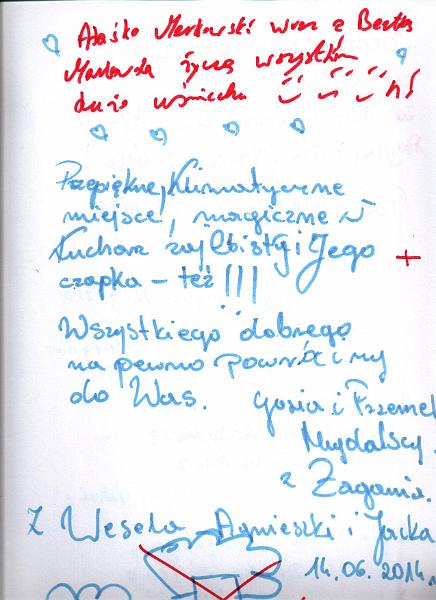 wraz z
życzą wszystkim
dużo uśmiechu
Przepiękne, klimatyczne
miejsce, magiczne
Kucharz zaj(e)bisty i Jego
czapka - też !!!
Wszystkiego dobrego
na pewno powrócimy
do Was. Gosia i Przemek
Migdalscy.
z Żagania.
Z Wesela Agnieszki i Jacka
14.06.2014r.